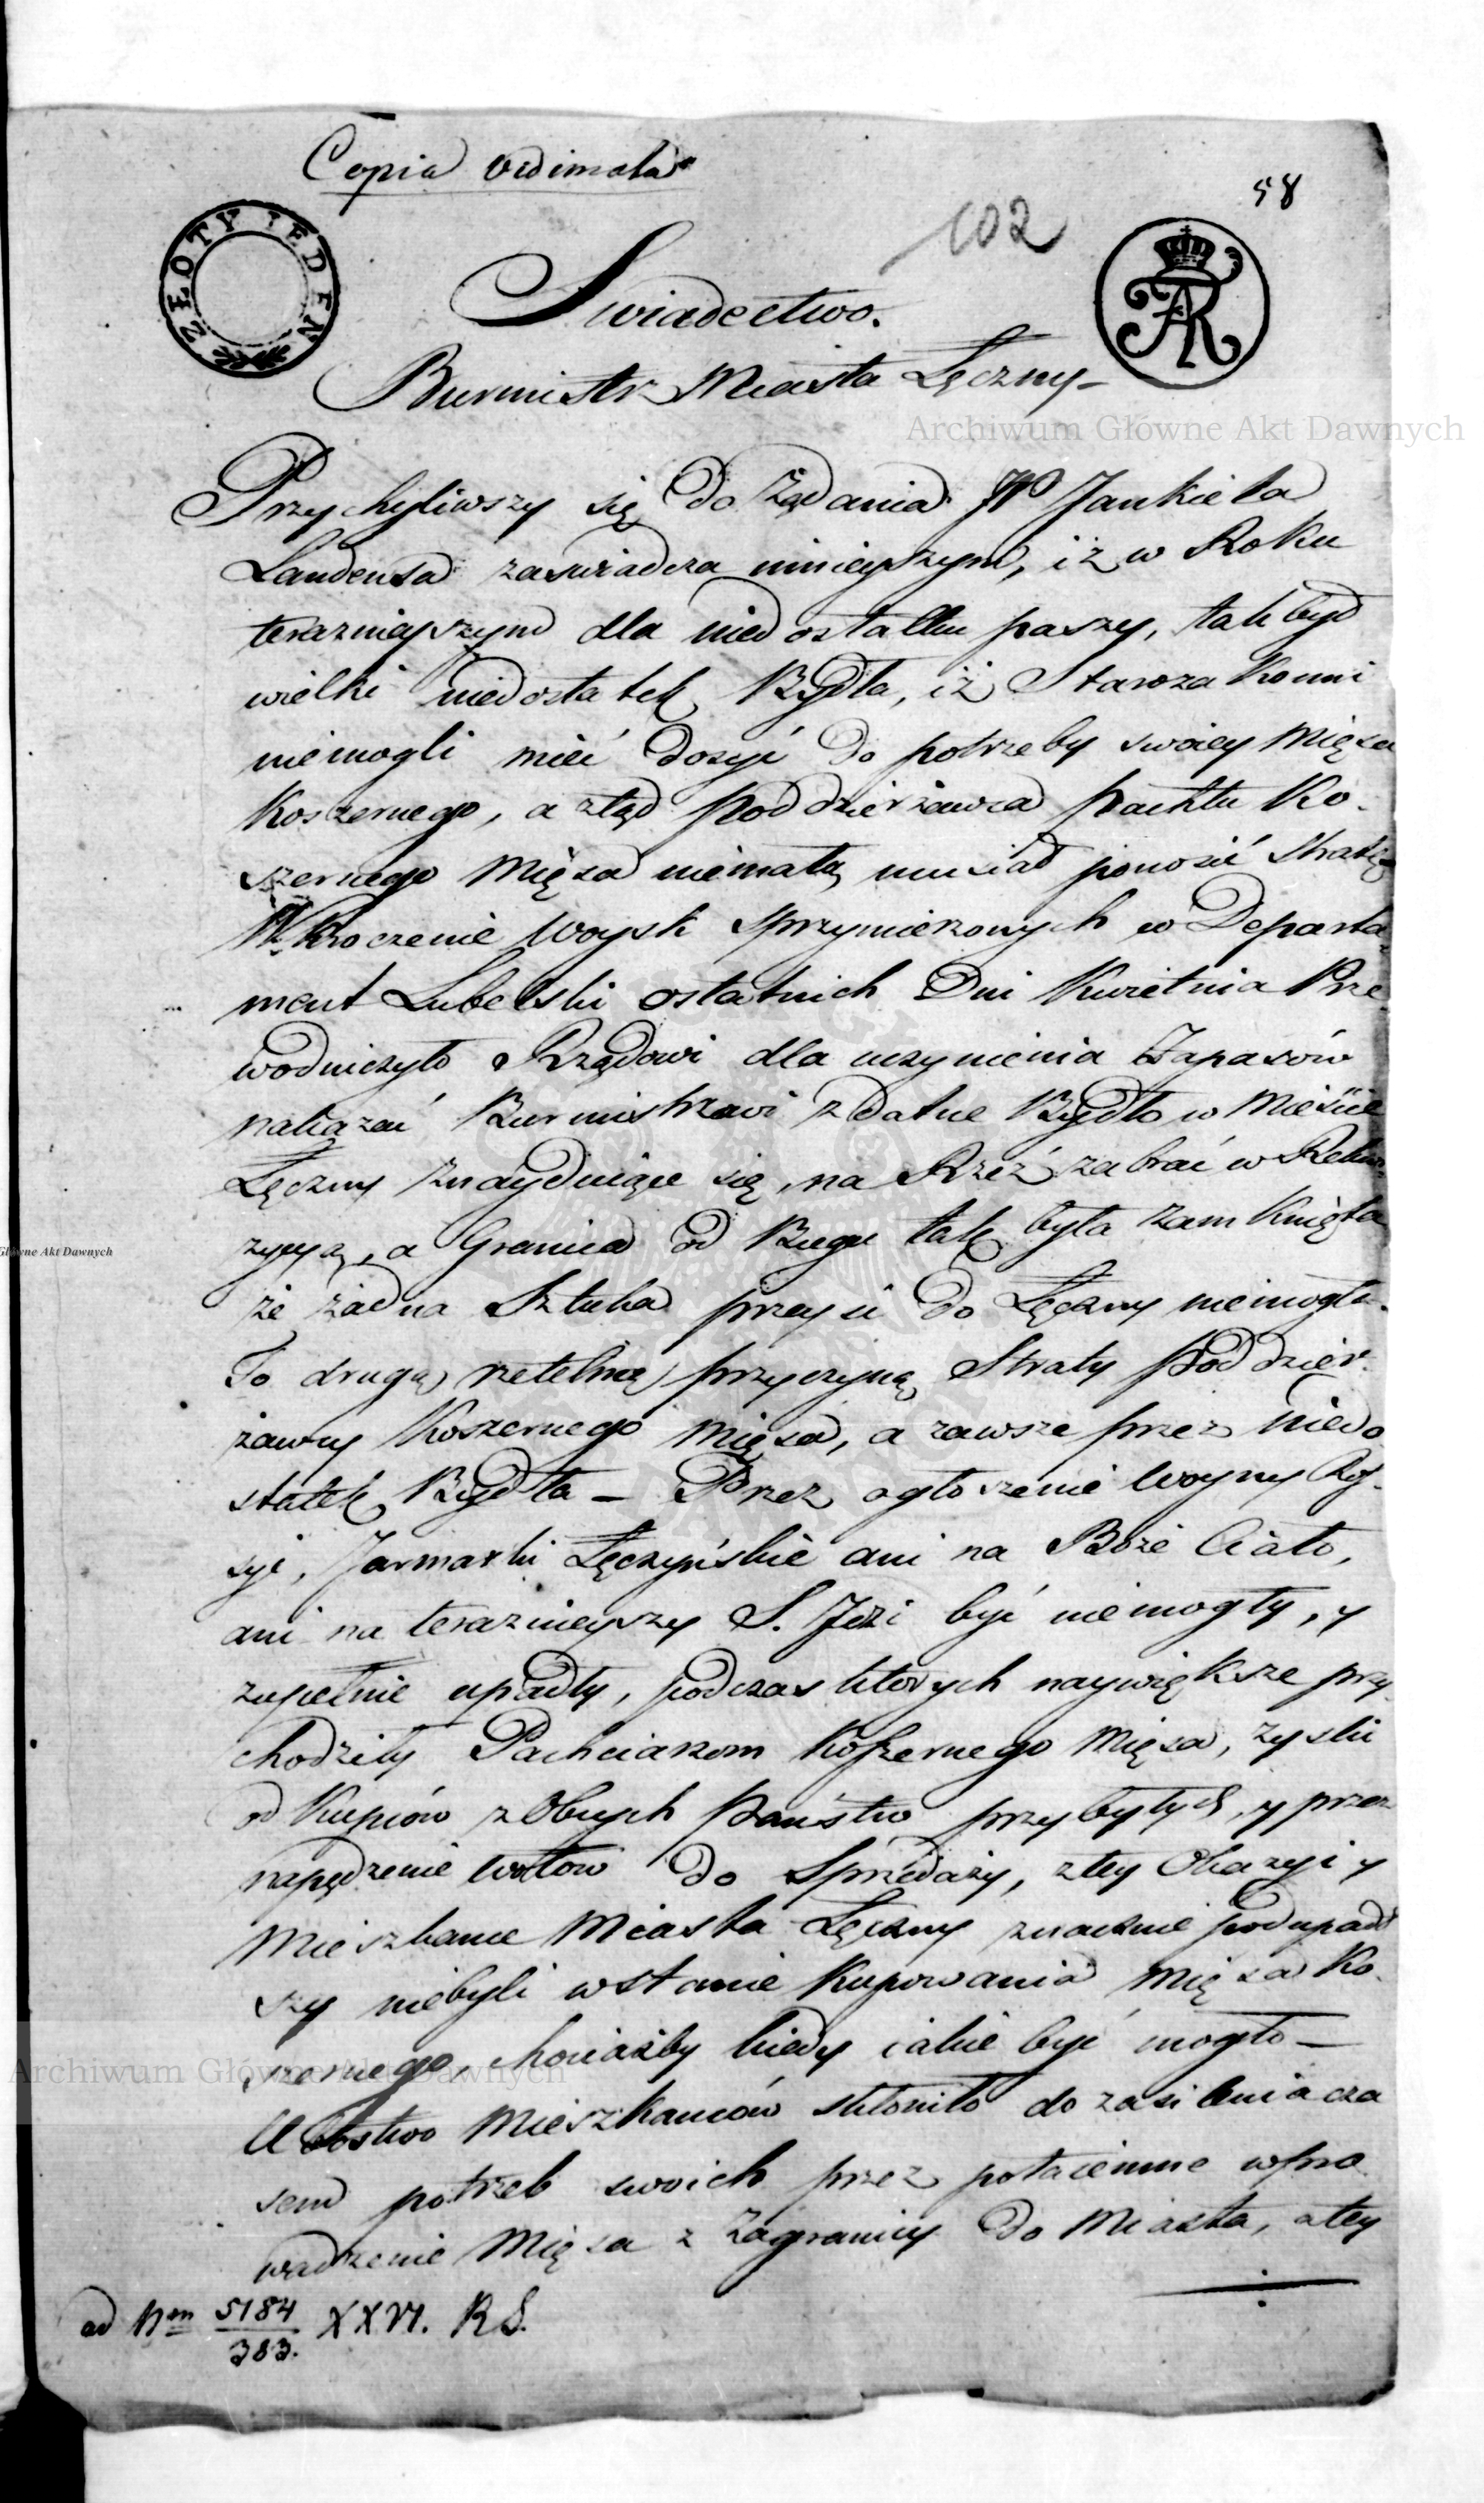 Copia vidimata
58
102
ZŁOTY JEDEN
Swiadectwo.
Burmistrz Miasta Łęczny –
Archiwum Główne Akt Dawnych
Przychyliwszy się do Żądania Jankiela
Landensa zaswiadcza ninieyszym, iż w Roku
teraznieyszym dla niedostatku paszy, tak był
wielki niedostatek Bydła, iż Starozakonni
niemogli mieć dosyć do potrzeby swoiey Mięsa
Koszernego, a ztąd Poddzierżawca Pachtu Ko-
szernego Mięsa niemałą musiał ponosić Stratę
Wkroczenie Woysk sprzymierzonych w Departa-
ment Lubelski ostatnich Dni Kwietnia
wodniczyło Rządowi dla uczynienia Zapasów
nakazać Burmistrzowi zdatne Bydło w Mieście
Łęczny znayduiące się, na Rzeź zabrać w Rekwi
zycyą, a Granica od Bugu tak była zamknięta
Główne Akt Dawnych
że żadna Sztuka przeyść do Łęczny niemogła.
To drugą rzetelną przyczyną Straty Poddzier-
żawcy Koszernego Mięsa, a zawsze przez niedo
statek Bydła – Przez ogłoszenie Woyny Ros-
syi, Jarmarki Łęczyńskie ani na Boże Ciało,
ani na teraznieyszy S. Idzi być niemogły, y
zupełnie upadły, podczas których naywiększe przy
chodziły Pachciarzom Koszernego Mięsa, zyski
od Kupców z Obuch Państw przybyłych, y przez
napędzenie wołów do Sprzedaży, z tey Okazyi y
Mieszkance Miasta Łęczny znacznie podupadł
szy niebyli wstanie kupowania Mięsa Ko-
szernego, chociażby kiedy iakie być mogło –
Archiwum Główne Akt Dawnych
Ubostwo Mieszkancow skłoniło do zasilenia cza
sem potrzeb swoich przez potaiemne wpro
wadzenie Mięsa z Zagranicy do Miasta, z tey
ad Nm 5184/383. XXVI. R S.